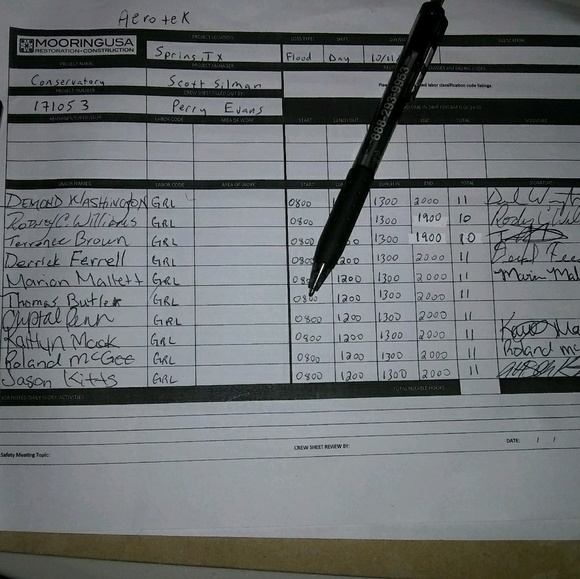 Aerotek
MOORINGUSA
RESTORATION+CONSTRUCTION
PROJECT LOCATION
LOSS TYPE
Spring, TX Flood Day 10/11
PROJECT NAME PROJECT MANAGER
Conservatory Scott Silman
PROJECT NUMBER CREW SHEET FILLED OUT BY
171053 Perry Evans
labor classification code listings.
888-293-9953
LABOR CODE AREA OF WORK START END TOTAL SIGNATURE
LABOR NAMES LABOR CODE AREA OF WORK START END TOTAL SIGNATURE
DEMOND WASHINGTON GRL 0800 1300 2000 11
Rodney C. Williams GRL 0800 1300 1900 10
Terrence Brown GRL 080 1300 1900 10
Derrick Ferrell GRL 080 1300 2000 11
Marion Mallett GRL 080 1200 1300 2000 11 Marion Mal
Thomas Butler GRL 0800 1200 1300 2000 11
Crystal Penn GRL 0800 1200 1300 2000 11
Kaitlyn Mook GRL 0800 1200 1300 2000 11
Roland McGee GRL 0800 1200 1300 2000 11 Roland Mc
Jason Kitts GRL 0800 1200 1300 2000 11
TOTAL BILLABLE HOURS
Safety Meeting Topic: CREW SHEET REVIEW BY: DATE: / /